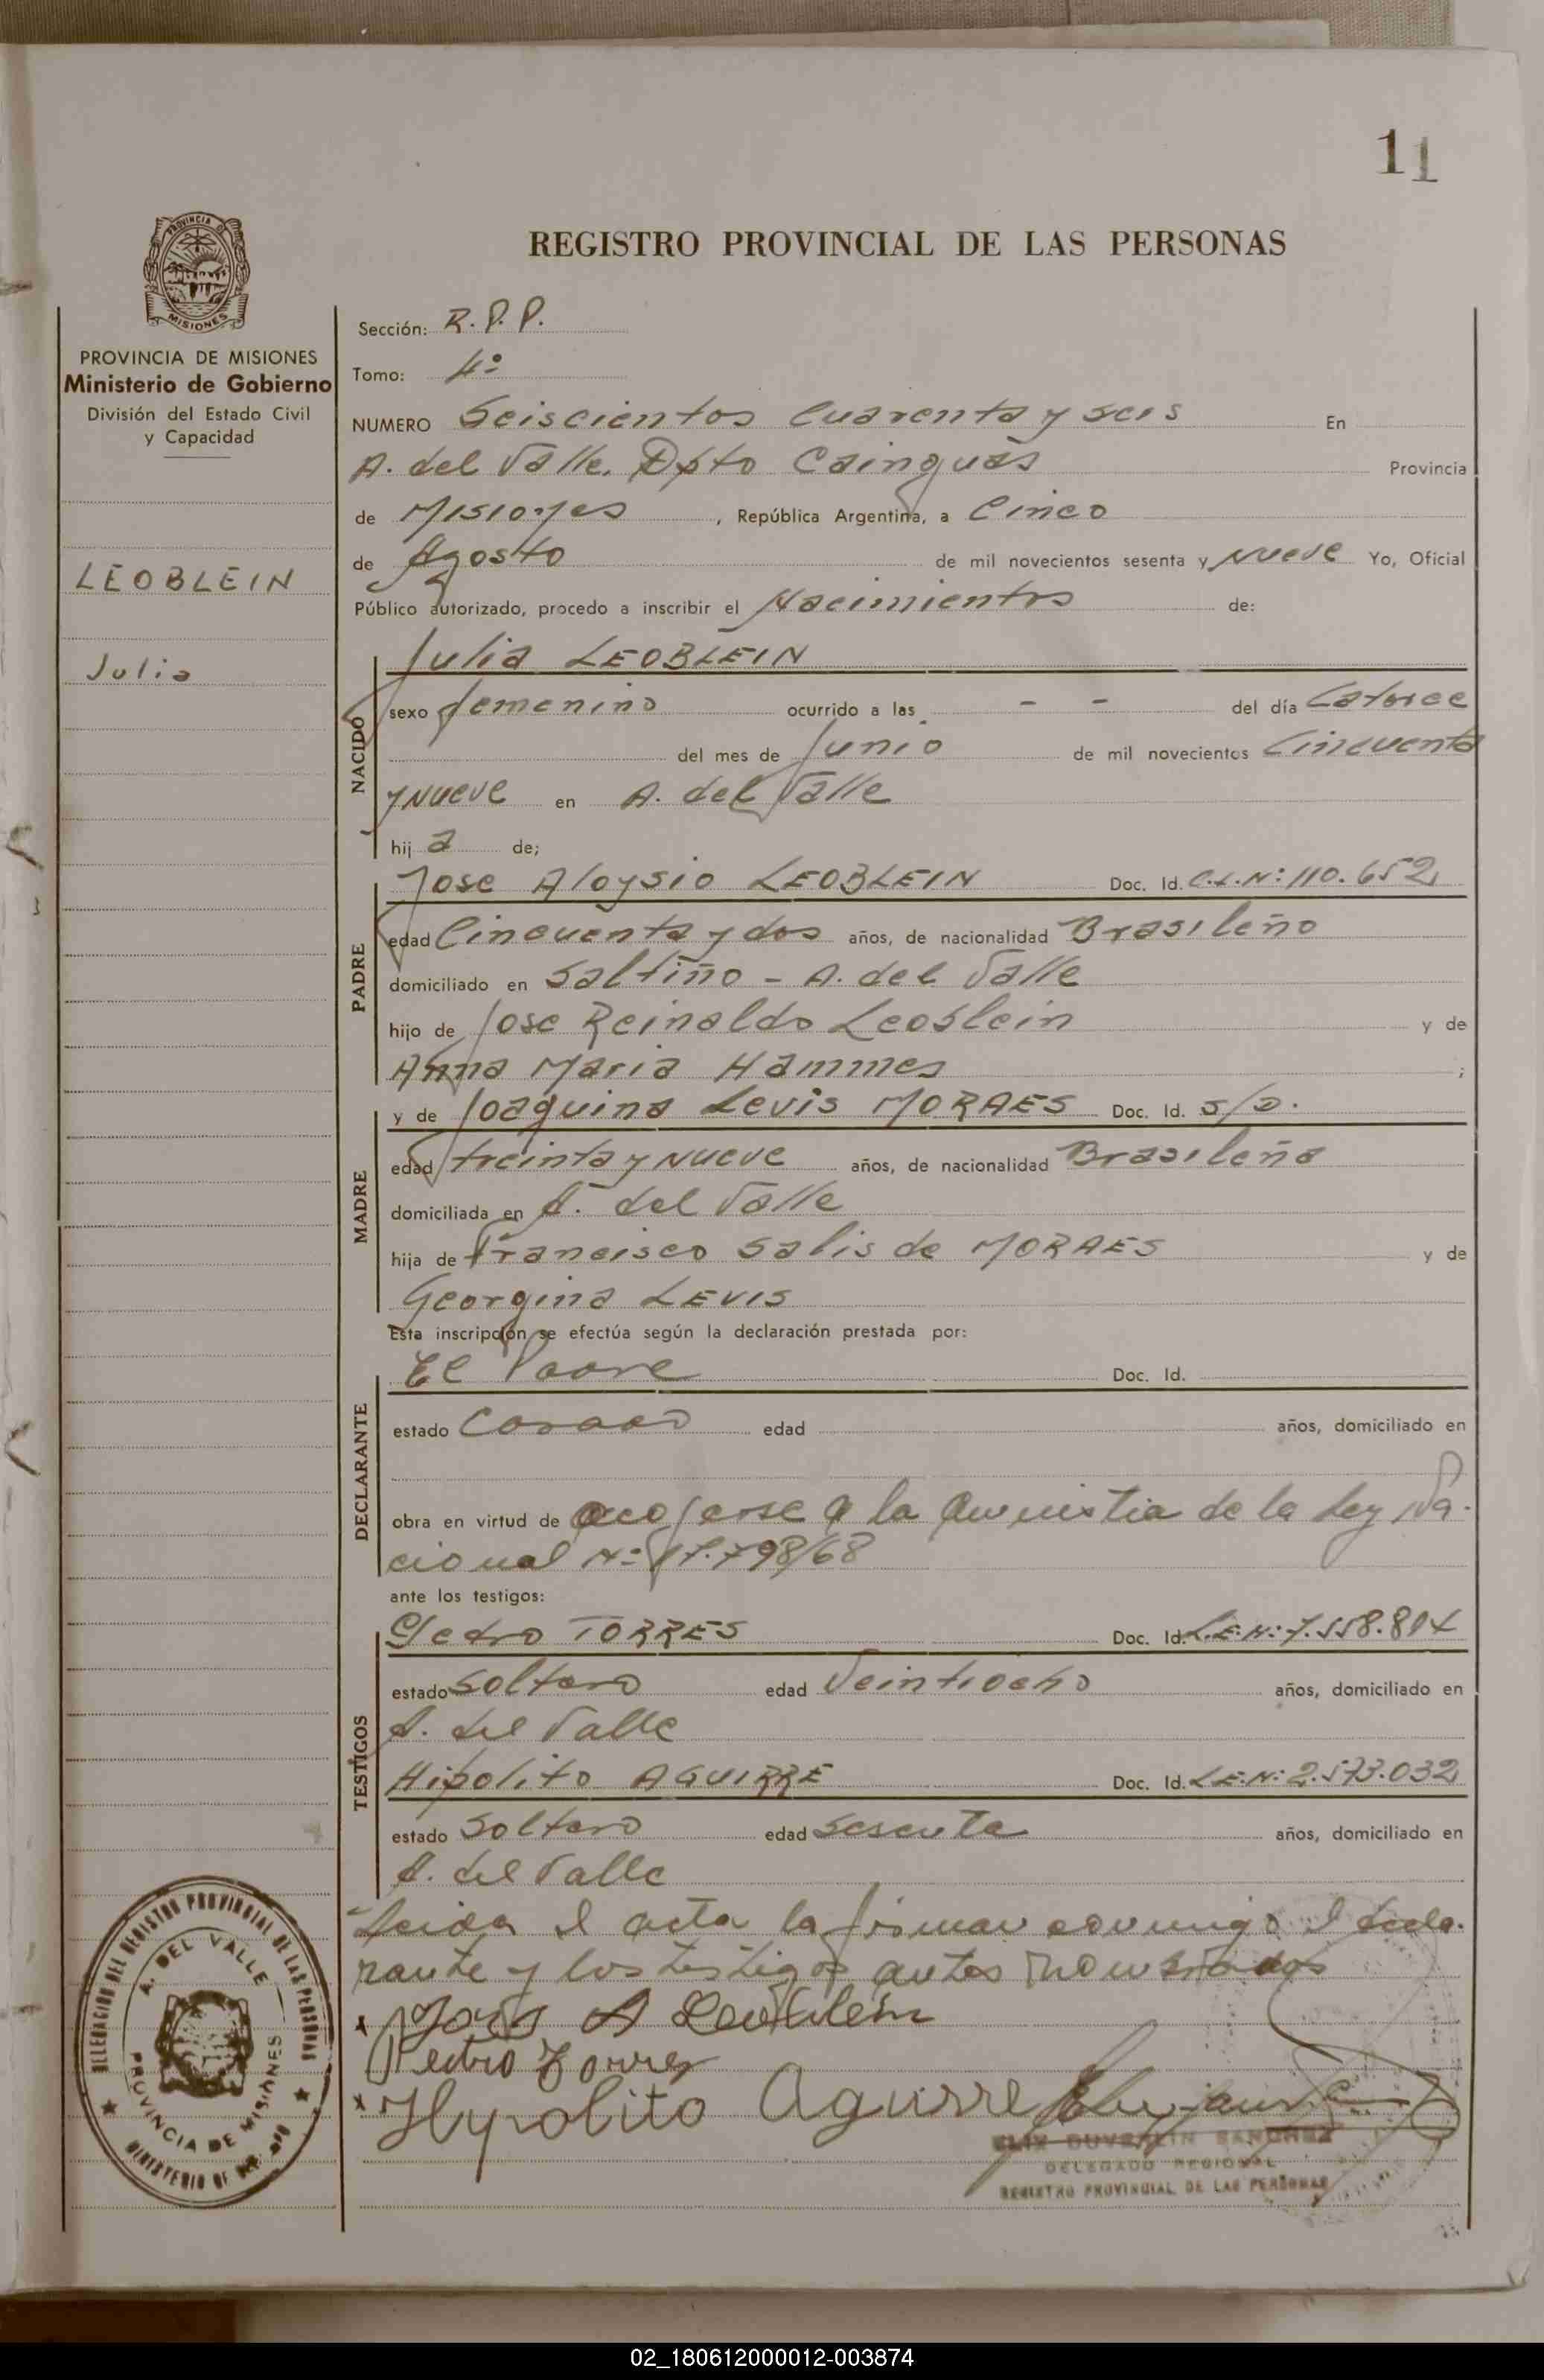 11
PROVINCIA
MISIONES
PROVINCIA DE MISIONES
Ministerio de Gobierno
División del Estado Civil
y Capacidad
LEOBLEIN
Julia
REGISTRO PROVINCIAL DE LAS PERSONAS
Sección: R.P.P.
Tomo: 4º
NUMERO Seiscientos Cuarenta y seis En
A. del Valle. Dpto Cainguás Provincia
de Misiones, República Argentina, a Cinco
de Agosto de mil novecientos sesenta y Nueve Yo, Oficial
Público autorizado, procedo a inscribir el Nacimiento de:
NACIDO
Julia LEOBLEIN
sexo femenino ocurrido a las - - del día Catorce
del mes de Junio de mil novecientos Cincuenta
y Nueve en A. del Valle
hij a de;
PADRE
Jose Aloysio LEOBLEIN Doc. Id. C.I.N: 110.652
edad Cincuenta y dos años, de nacionalidad Brasileño
domiciliado en Saltiño - A. del Valle
hijo de Jose Reinaldo Leoblein y de
Anna Maria Hammes ;
MADRE
y de Joaquina Levis MORAES Doc. Id. S/D.
edad treinta y Nueve años, de nacionalidad Brasileña
domiciliada en A. del Valle
hija de Francisco Salis de MORAES y de
Georgina LEVIS
Esta inscripción se efectúa según la declaración prestada por:
DECLARANTE
El Padre Doc. Id.
estado Casado edad años, domiciliado en
obra en virtud de acojerse a la Amnistia de la Ley Na-
cional Nº 17.798/68
ante los testigos:
TESTIGOS
Pedro TORRES Doc. Id. L.E.N: 7.558.814
estado Soltero edad Veintiocho años, domiciliado en
A. del Valle
Hipolito AGUIRRE Doc. Id. L.E.N: 2.573.032
estado Soltero edad Sesenta años, domiciliado en
A. del Valle
Leida el acta la firman conmigo el decla-
rante y los testigos antes nombrados
José A Leoblein
Pedro Torres
Hypolito Aguirre
DELEGADO REGIONAL
REGISTRO PROVINCIAL DE LAS PERSONAS
DELEGACION DEL REGISTRO PROVINCIAL DE LAS PERSONAS
A. DEL VALLE
PROVINCIA DE MISIONES
02_180612000012-003874